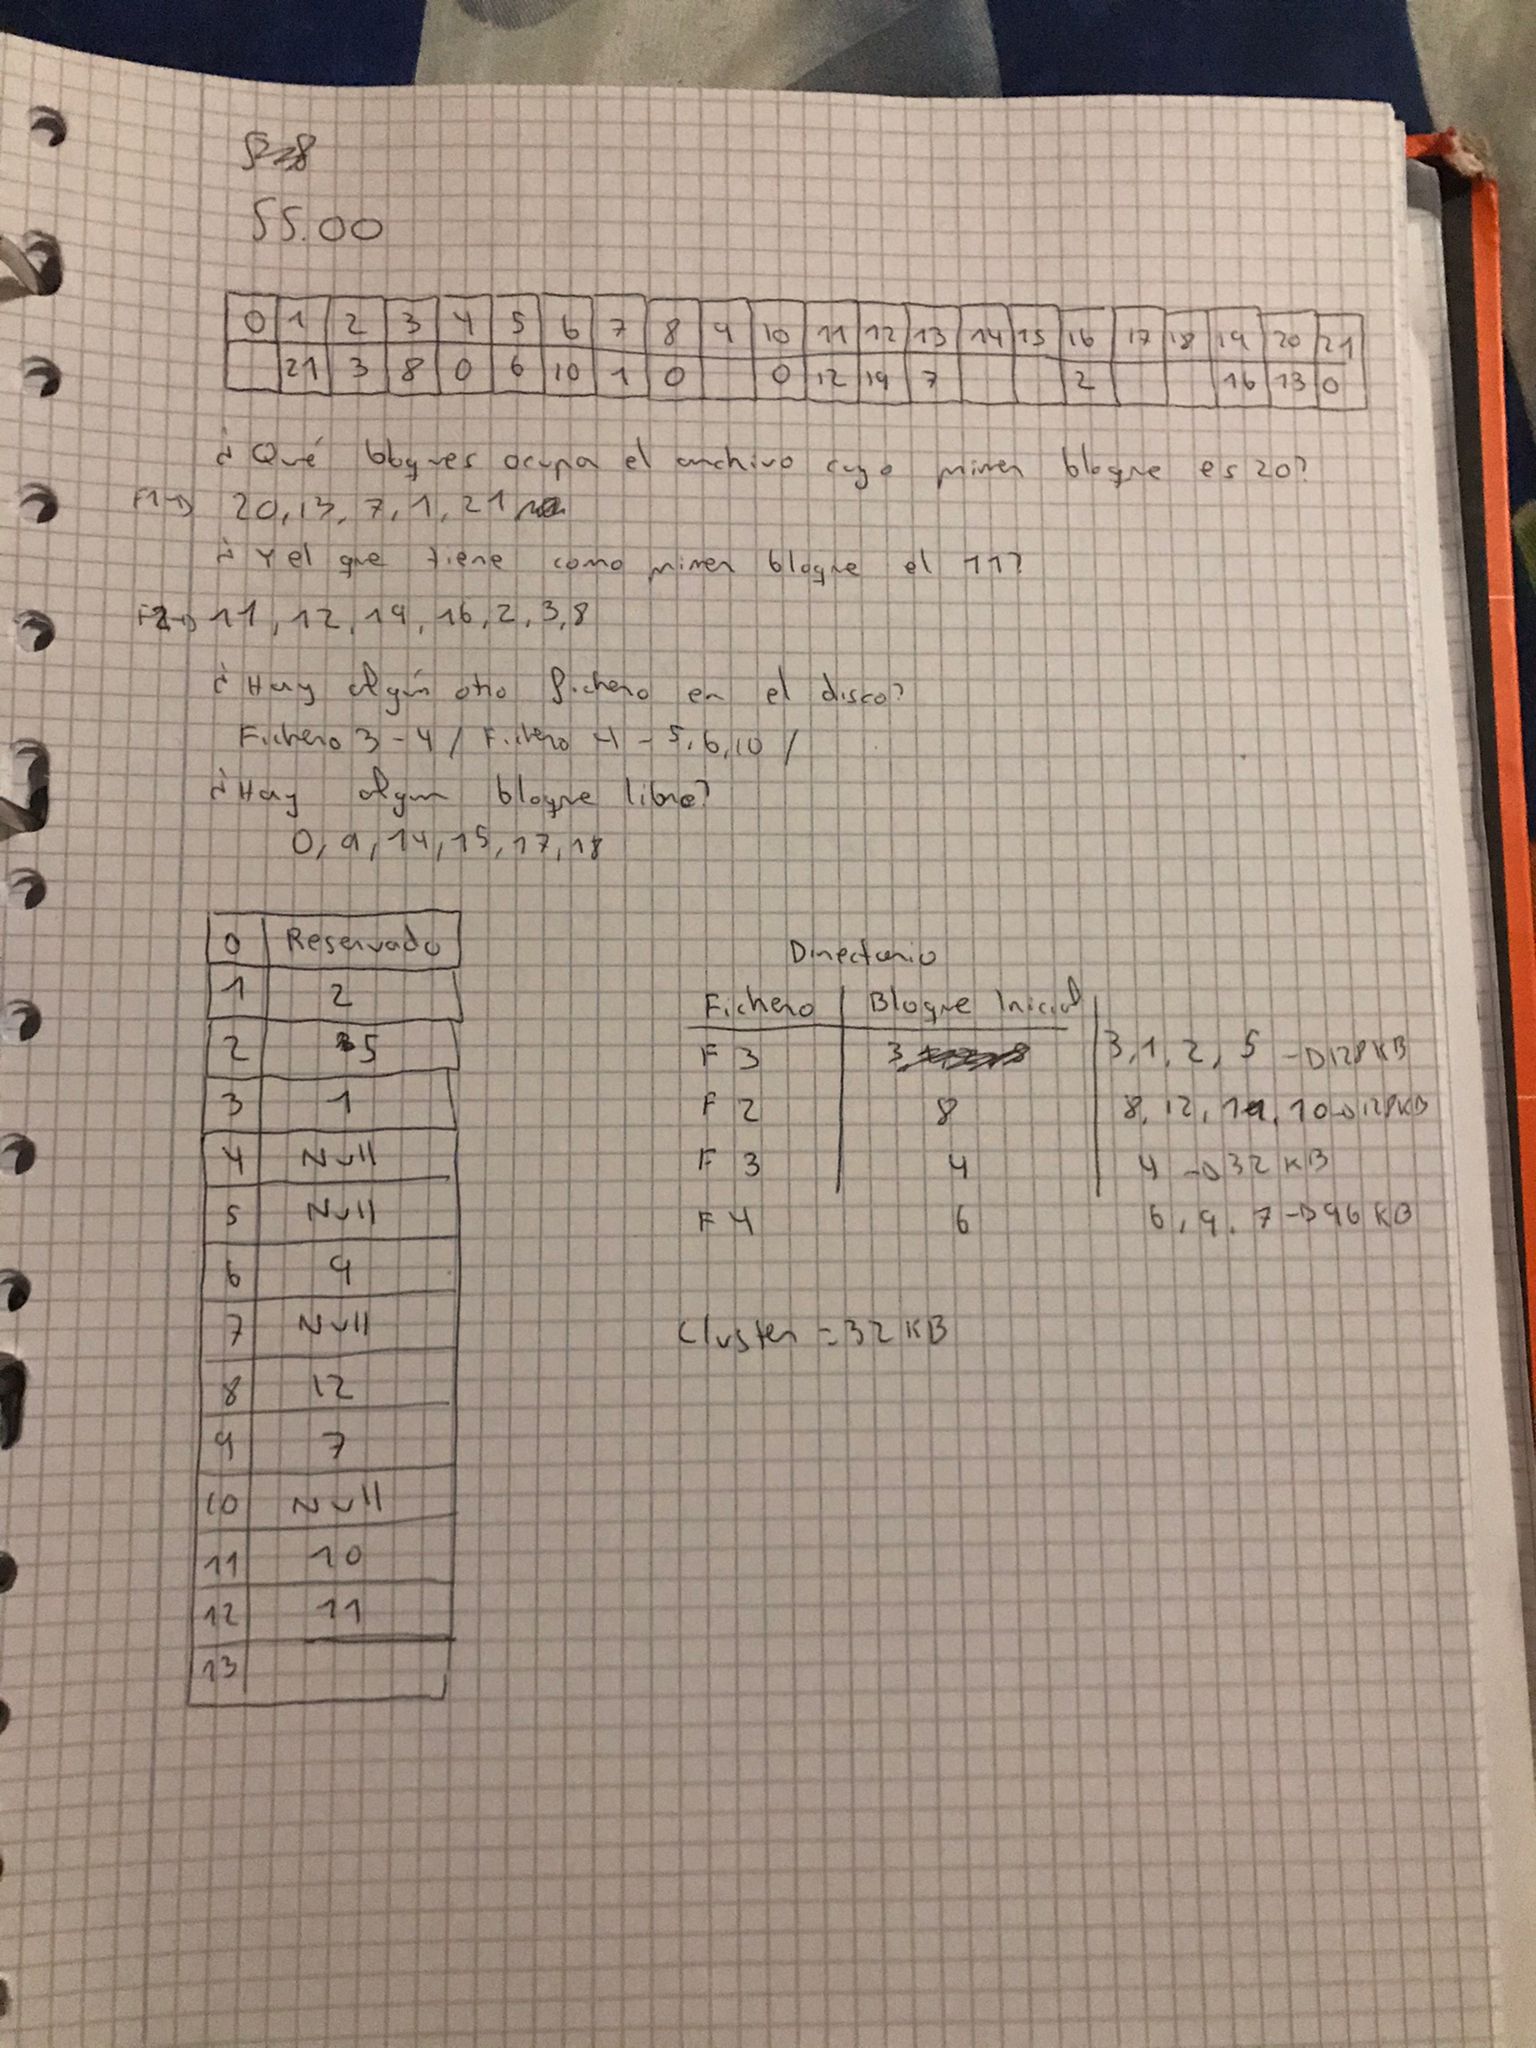 55.00
0 1 2 3 4 5 6 7 8 9 10 11 12 13 14 15 16 17 18 19 20 21
21 3 8 0 6 10 1 0 0 12 19 7 2 16 13 0
¿Qué bloques ocupa el archivo cuyo primer bloque es 20?
F1→ 20, 13, 7, 1, 21
¿Y el que tiene como primer bloque el 11?
F2→ 11, 12, 19, 16, 2, 3, 8
¿Hay algún otro fichero en el disco?
Fichero 3 - 4 / Fichero 4 - 5, 6, 10 /
¿Hay algun bloque libre?
0, 9, 14, 15, 17, 18
0 Reservado
1 2
2 5
3 1
4 Null
5 Null
6 9
7 Null
8 12
9 7
10 Null
11 10
12 11
13
Directorio
Fichero Bloque Inicial
F 3 3 3, 1, 2, 5 → 128 KB
F 2 8 8, 12, 11, 10 → 128 KB
F 3 4 4 → 32 KB
F 4 6 6, 9, 7 → 96 KB
Cluster = 32 KB